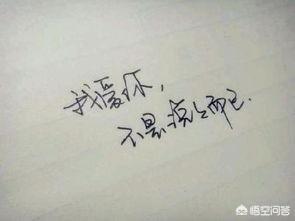 我爱你,
不是说说而已.
悟空问答